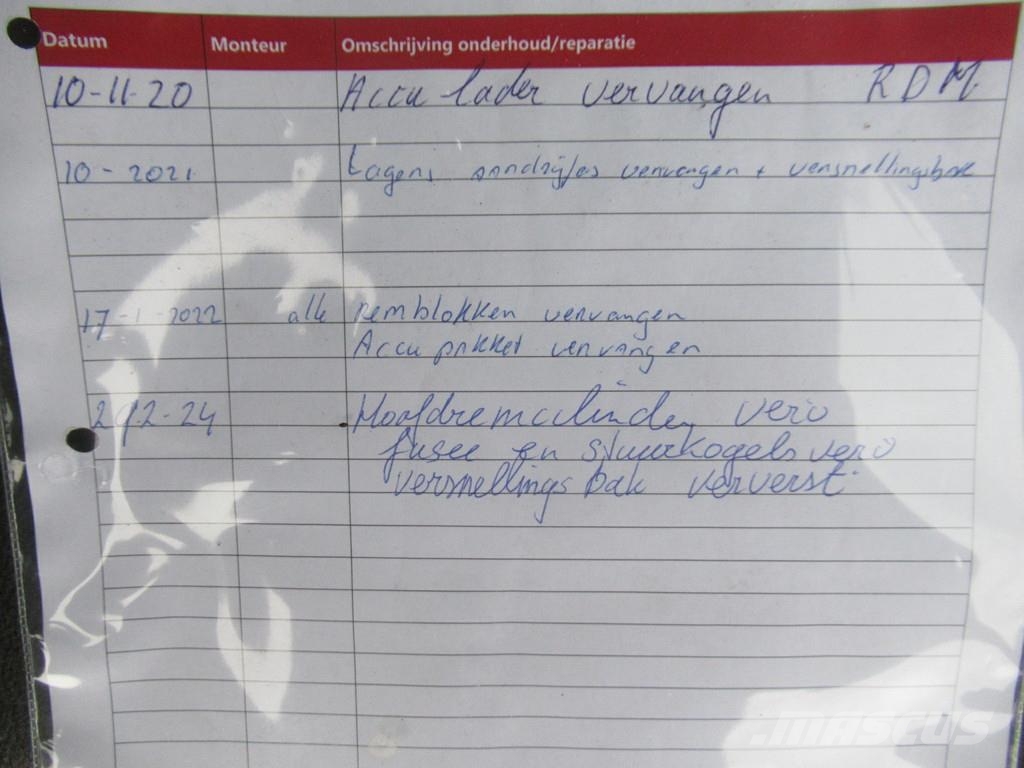 Datum Monteur Omschrijving onderhoud/reparatie
10-11-20 Accu lader vervangen RDM
10-2021 Lagers aandrijfas vervangen + versnellingsbak
17-1-2022 alle remblokken vervangen
Accu pakket vervangen
2/12-24 Hoofdremcilinder verv
fusee en stuurkogels verv
versnellings bak ververst
MASCUS